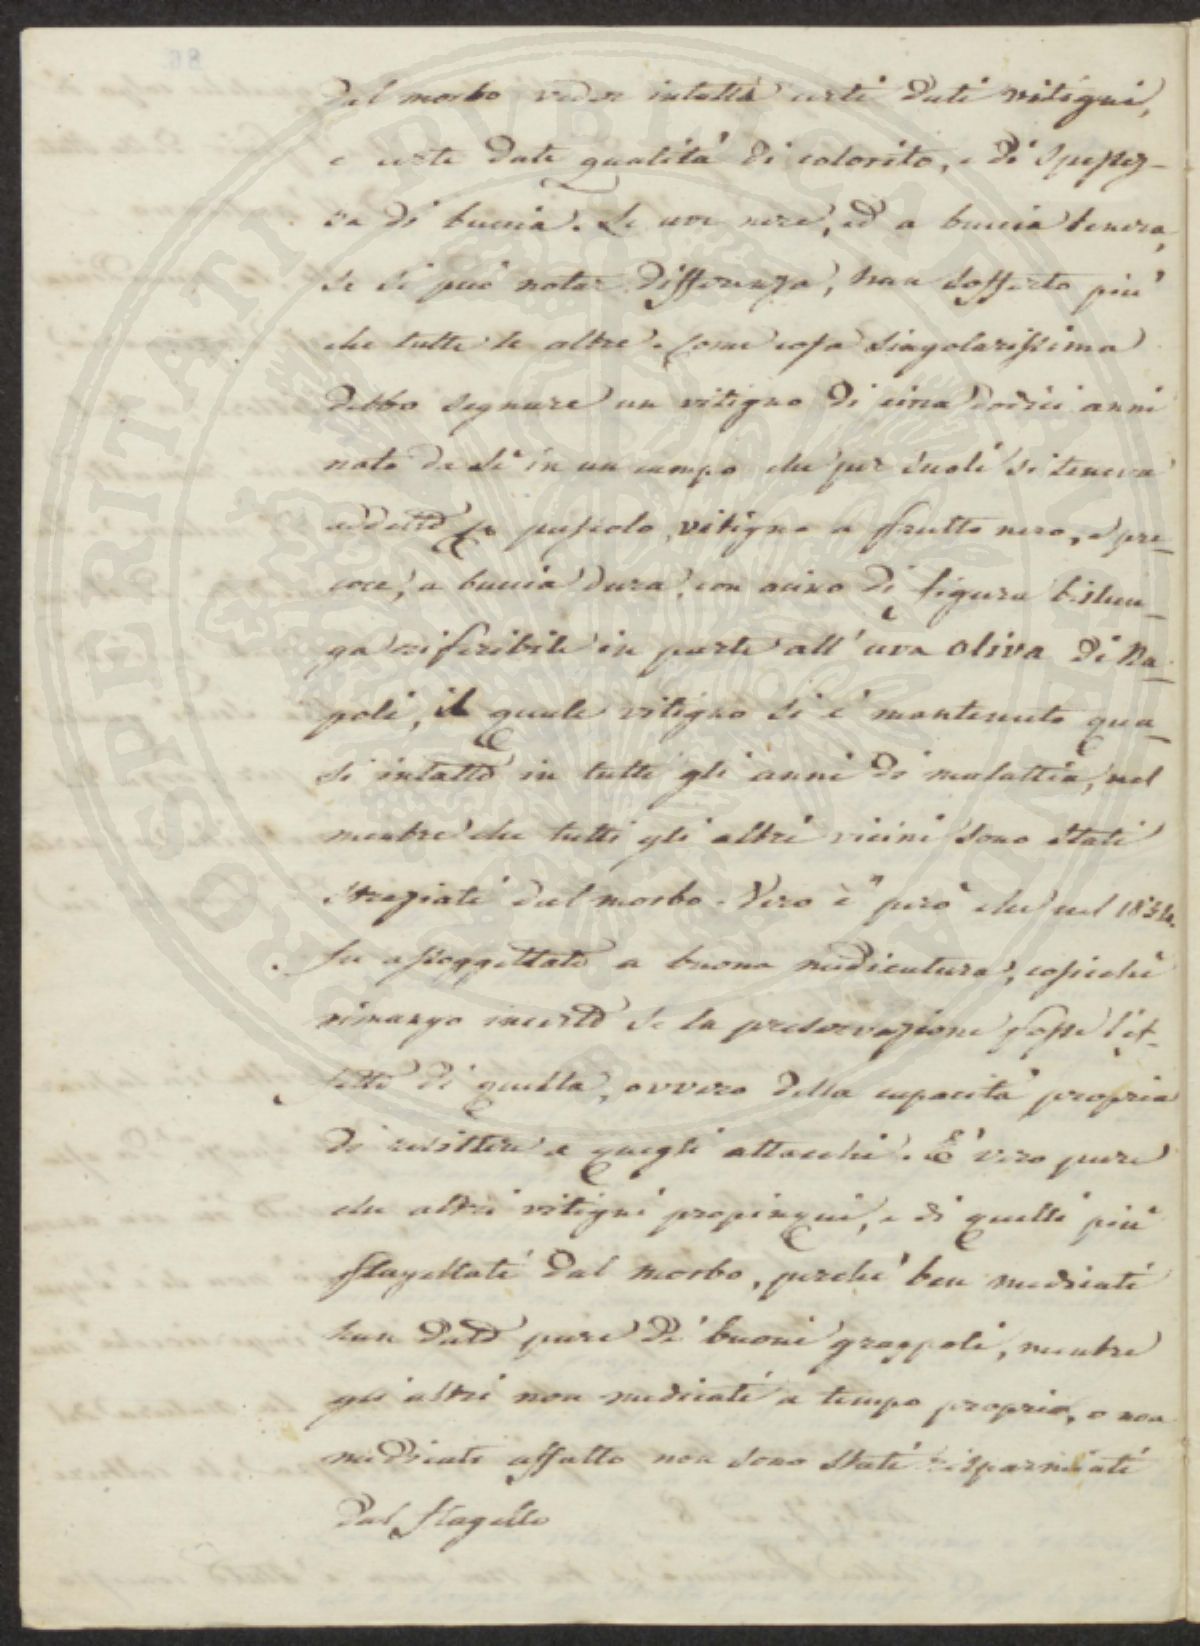 dal morbo veder intatti certi dati vitigni,
e certe date qualità di colorito, e di spessez-
za di buccia. Le uve nere, ed a buccia tenera,
se si può notar differenza, han sofferto più
che tutte le altre. Come cosa singolarissima
debbo segnare un vitigno di circa dodici anni
nato da sè in un campo che per suoli si teneva
addetto pascolo, vitigno a frutto nero, e pre-
coce, a buccia dura, con acino di figura bislun-
ga riferibile in parte all'uva oliva di Na-
poli, il quale vitigno si è mantenuto qua-
si intatto in tutti gli anni di malattia, nel
mentre che tutti gli altri vicini sono stati
straziati dal morbo. Vero è però che nel
fu assoggettato a buona medicatura, cosicchè
rimango incerto se la preservazione fosse l'ef-
fetto di quella, ovvero della capacità propria
di resistere a quegli attacchi. È vero pure
che altri vitigni propinqui, e di quelli più
flagellati dal morbo, perchè ben medicati
han dato pure di buoni grappoli, mentre
gli altri non medicati a tempo proprio, o non
medicati affatto non sono stati risparmiati
dal flagello
PUBLICAE
PROSPERITATI